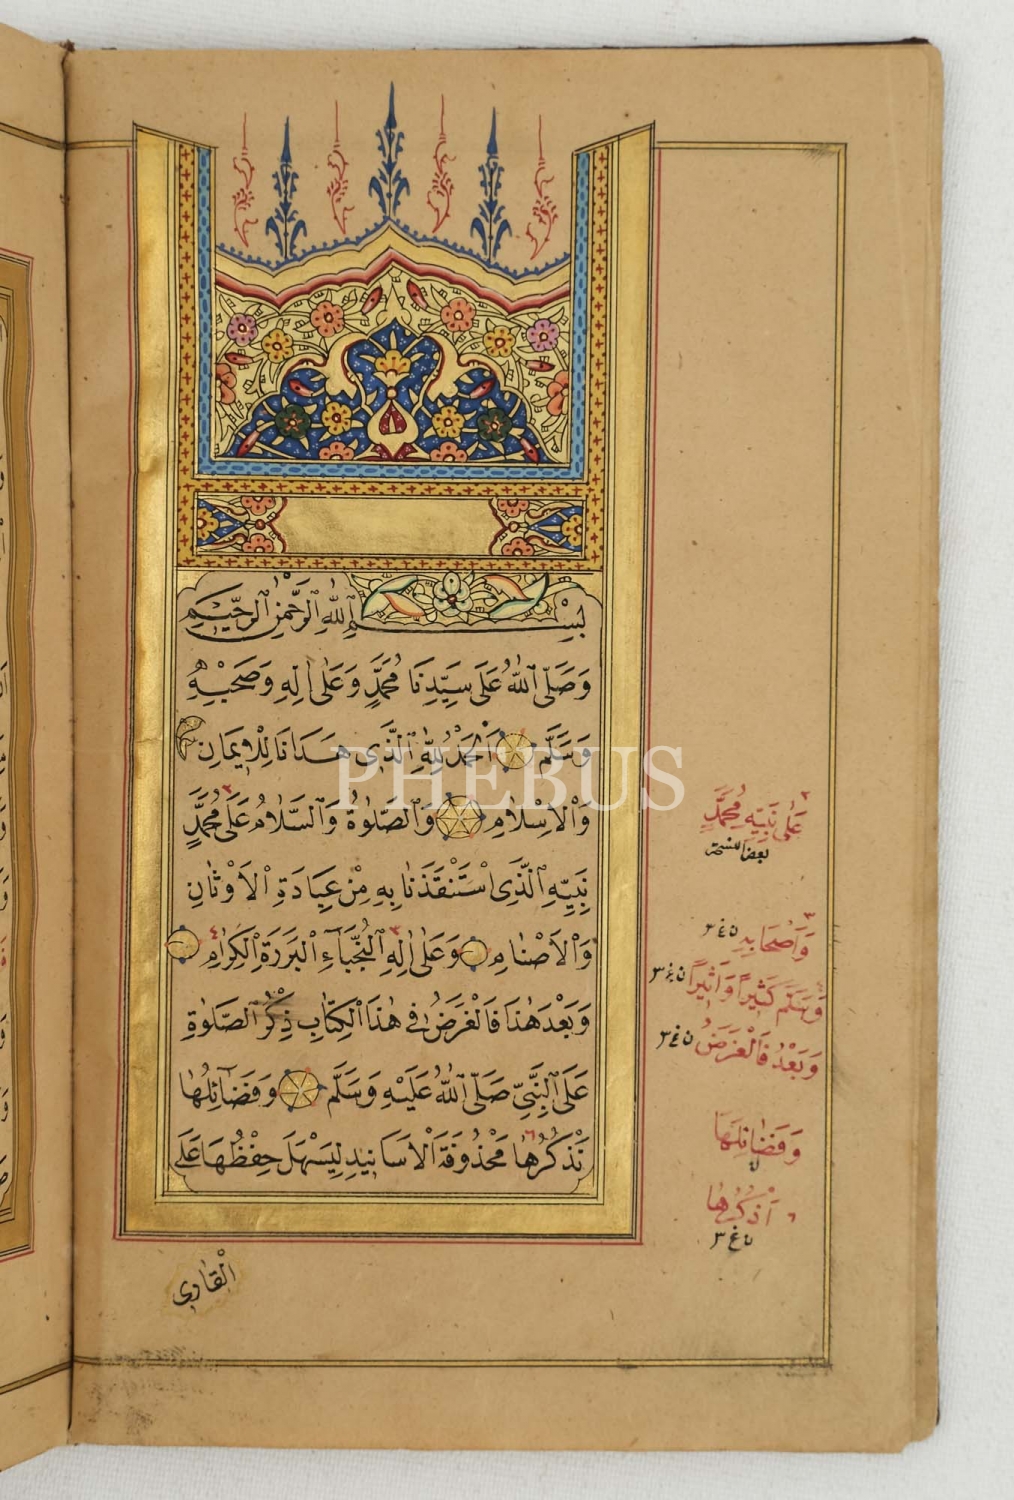 بِسْمِ اللهِ الرَّحْمٰنِ الرَّحِيمِ
وَصَلَّى اللهُ عَلَى سَيِّدِنَا مُحَمَّدٍ وَعَلٰى اٰلِهِ وَصَحْبِهِ
وَسَلَّمَ اَلْحَمْدُ لِلّٰهِ الَّذِى هَدَانَا لِلْاِيمَانِ
وَالْاِسْلَامِ وَالصَّلٰوةُ وَالسَّلَامُ عَلَى مُحَمَّدٍ
نَبِيِّهِ الَّذِى اسْتَنْقَذَنَا بِهِ مِنْ عِبَادَةِ الْاَوْثَانِ
وَالْاَصْنَامِ وَعَلٰى اٰلِهِ النُّجَبَآءِ الْبَرَرَةِ الْكِرَامِ
وَبَعْدَ هٰذَا فَالْغَرَضُ فِى هٰذَا الْكِتَابِ ذِكْرُ الصَّلٰوةِ
عَلَى النَّبِىِّ صَلَّى اللهُ عَلَيْهِ وَسَلَّمَ وَفَضَآئِلُهَا
نَذْكُرُهَا مَحْذُوفَةَ الْاَسَانِيدِ لِيَسْهُلَ حِفْظُهَا عَلَى
الْقَارِى
٢ عَلٰى نَبِيِّهِ مُحَمَّدٍ
٣ وَاَصْحَابِهِ ن غ ٣
٤ وَسَلَّمَ كَثِيرًا وَاَثِيرًا ن غ ٣
وَبَعْدُ فَالْغَرَضُ ن غ ٣
وَفَضَائِلَهَا
٦ اَذْكُرُهَا
ن غ ٣
PHEBUS